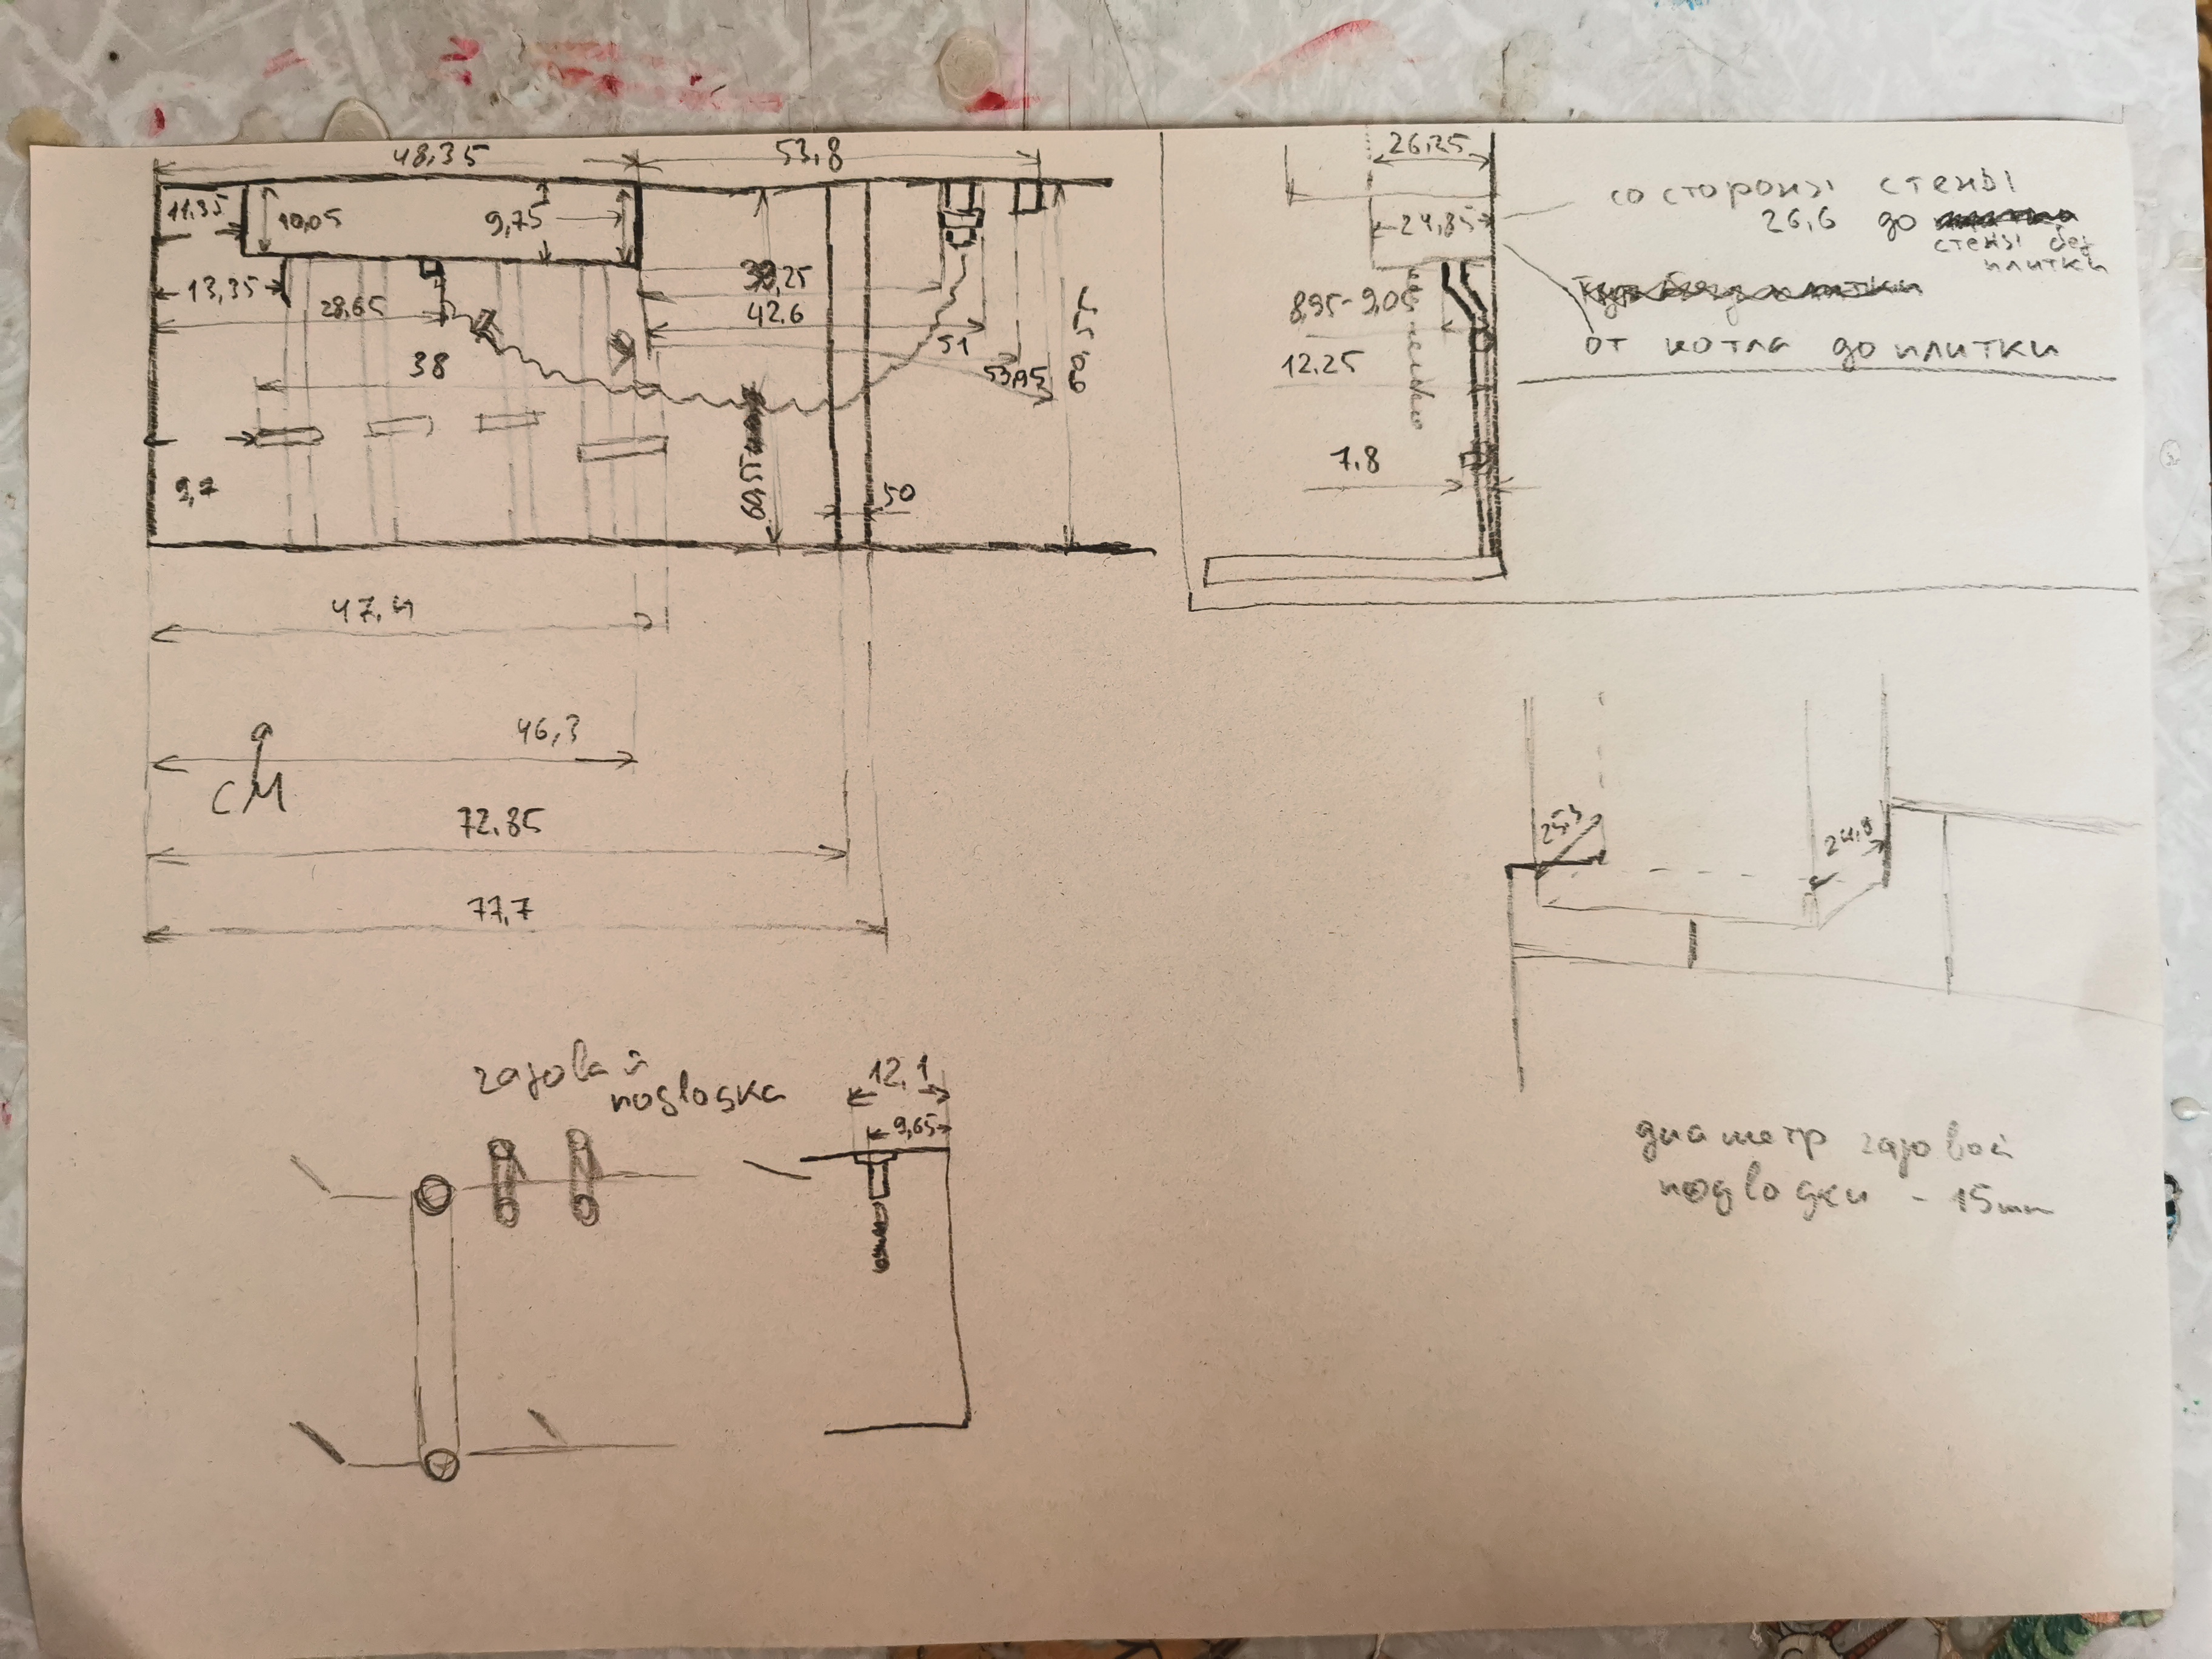 48,35
53,8
11,35
10,05
9,75
13,35
28,65
39,25
42,6
51
53,95
60,55
38
9,7
60,55
50
47,4
46,3
см
72,85
77,7
26,25
24,85
со стороны стены
26,6 до
стены без
плитки
от котла до плитки
8,95-9,05
12.25
7.8
25,3
24,9
газовая
подводка
12,1
9,65
диаметр газовой
подводки - 15мм